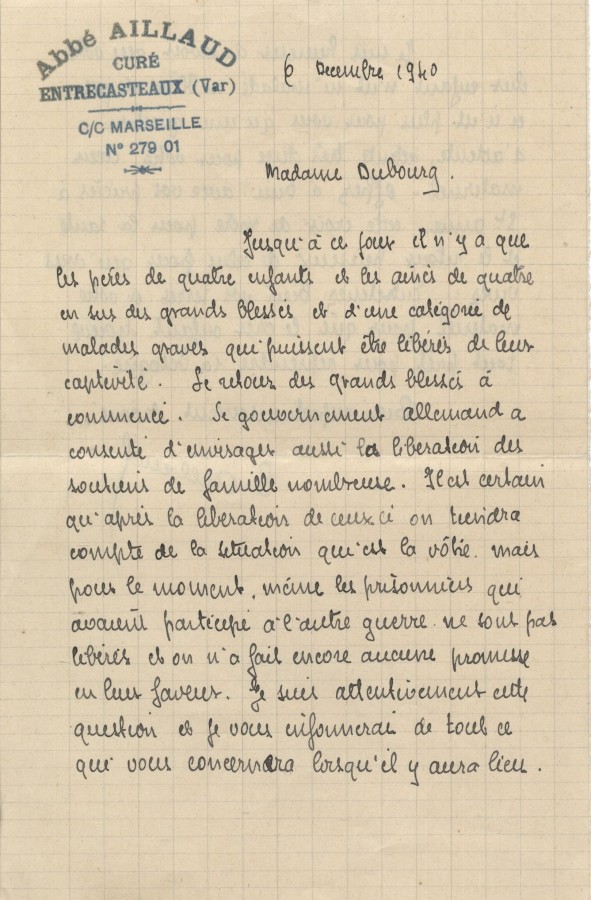 Abbé AILLAUD
CURÉ
ENTRECASTEAUX (Var)
C/C MARSEILLE
N° 279 01
6 Decembre 1940
Madame Dubourg.
Jusqu'à ce jour il n'y a que
les pères de quatre enfants et les ainés de quatre
en sus des grands blessés et d'une catégorie de
malades graves qui puissent être libérés de leur
captivité. Le retour des grands blessés à
commencé. Le gouvernement allemand a
consenti d'envisager aussi la liberation des
soutiens de famille nombreuse. Il est certain
qu'après la liberation de ceux ci on tiendra
compte de la situation qui est la vôtre. mais
pour le moment, même les prisonniers qui
avaient participé à l'autre guerre ne sont pas
libérés et on n'a fait encore aucune promesse
en leur faveur. Je suis attentivement cette
question et je vous informerai de tout ce
qui vous concernera lorsqu'il y aura lieu.